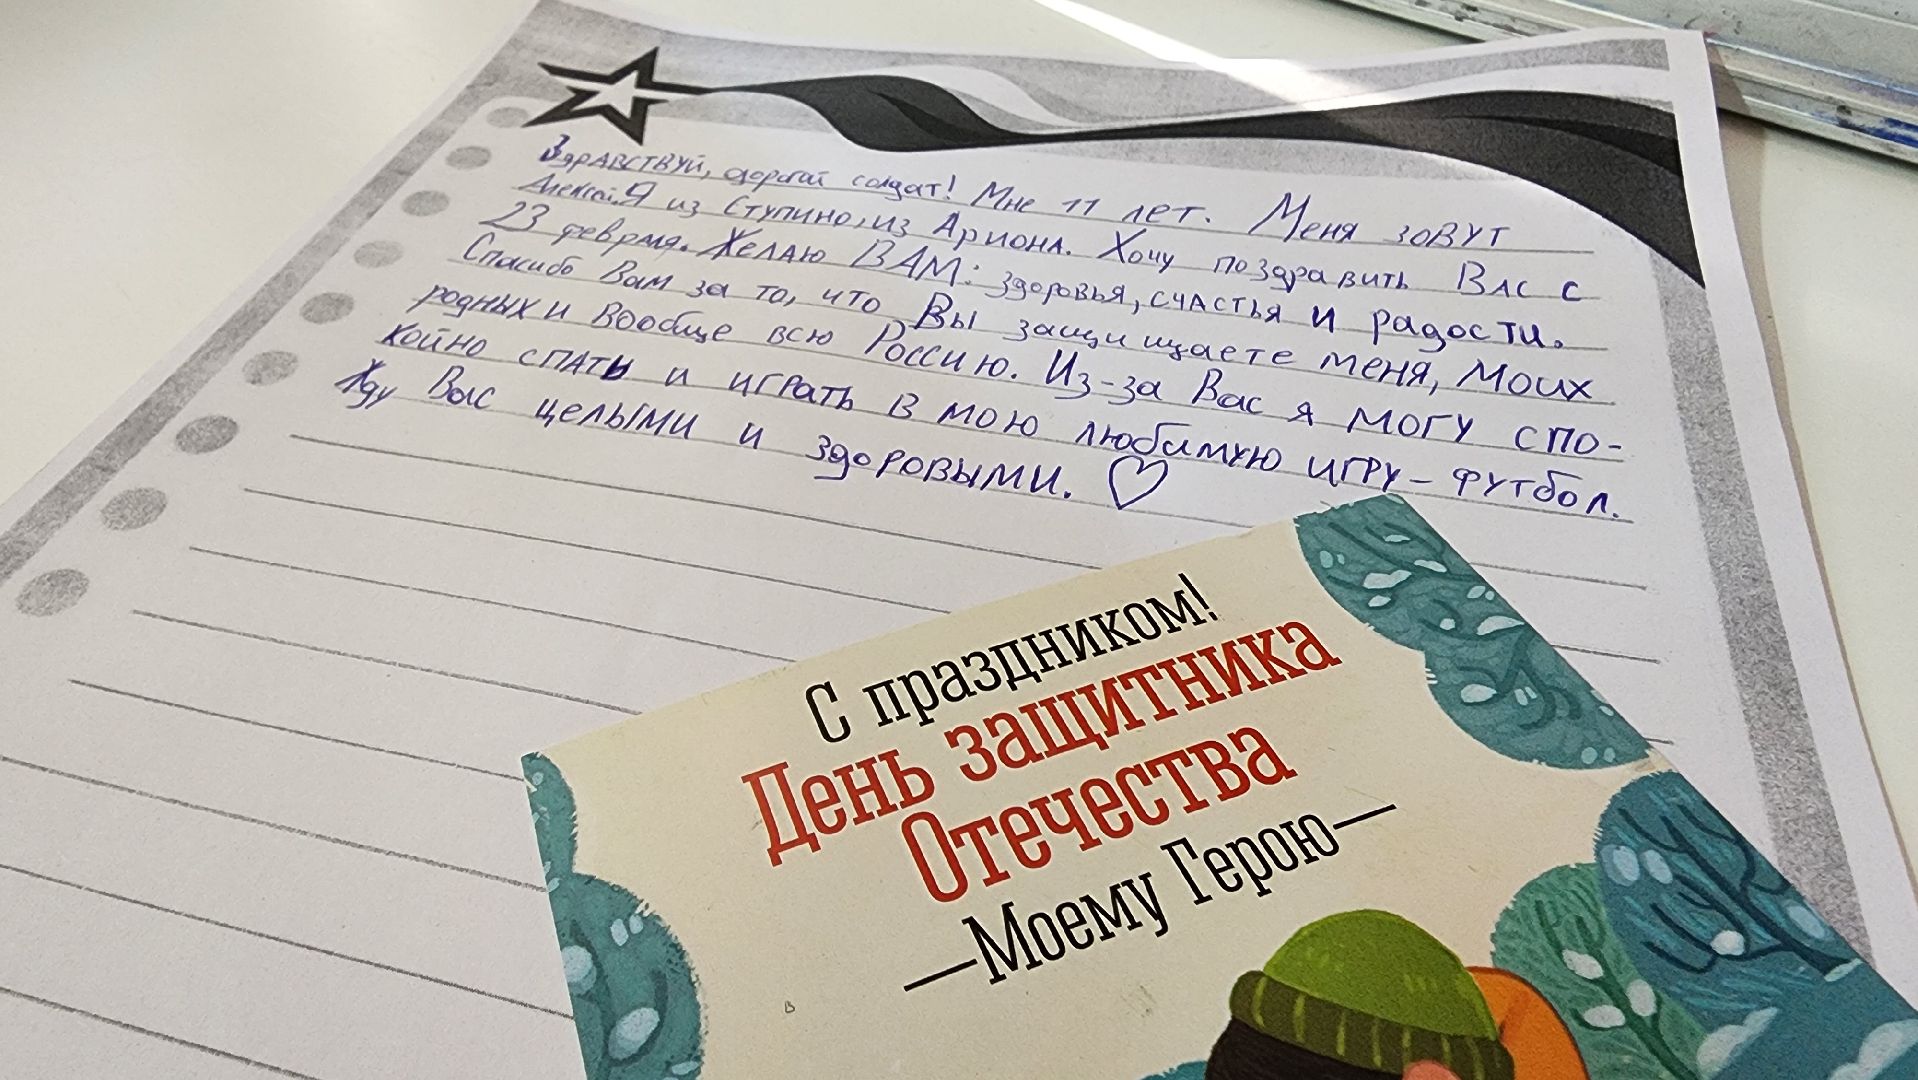 Здравствуй, дорогой солдат! Мне 11 лет. Меня зовут
Алексей. Я из Ступино, из Ариона. Хочу поздравить Вас с
23 февраля. Желаю ВАМ: здоровья, счастья и радости.
Спасибо Вам за то, что Вы защищаете меня, моих
родных и вообще всю Россию. Из-за Вас я могу спо-
койно спать и играть в мою любимую игру - футбол.
Жду Вас целыми и здоровыми. ♡
С праздником!
День защитника
Отечества
—Моему Герою—